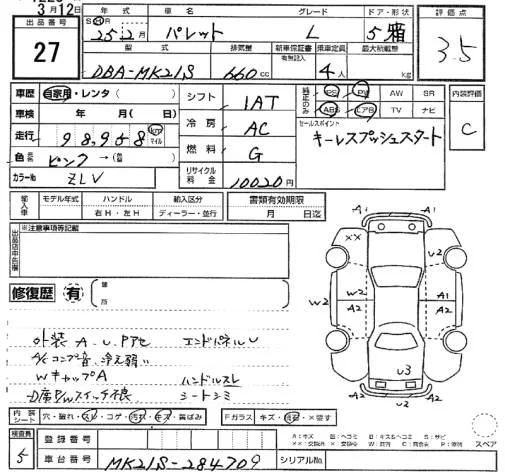 3月12日
年式 車名 グレード ドア・形状 評価点
出品番号 S H R
27 25年2月 パレット L 5 箱 3.5
型式 排気量 新車保証書 乗車定員 最大積載量
有無記入
DBA-MK21S 660cc 4人 kg
車歴 自家用・レンタ( ) シフト 1AT 純正のみ PS PW AW SR 内装評価
ABS エアB TV ナビ
車検 年 月( )日 冷房 AC セールスポイント C
キーレスプッシュスタート
走行 98,958 km マイル 燃料 G
色 ピンク→(替 )
カラーNo ZLV リサイクル料金 10020円
輸入車 モデル年式 ハンドル 輸入区分 書類有効期限
右H・左H ディーラー・並行 月 日迄
※注意事項等記載
出品店申告欄
修復歴 有 箇所
A1 A1
×× U2
A1
W2 W2 A2 A2
A1
A2
U3
A2 A2
外装 A.U.Pアセ エンドパネルU
A/Cコンプ音、冷え弱い
WキャップA ハンドルスレ
D席P/Wスイッチ不良 シートシミ
内装シート 穴・破れ・スレ・コゲ・汚れ・キズ・黄ばみ Fガラス キズ・ ・×要す
検査員 5 登録番号
A:キズ U:ヘコミ B:キズ&ヘコミ S:サビ
スペア
車台番号 MK21S-284709 シリアルNo.